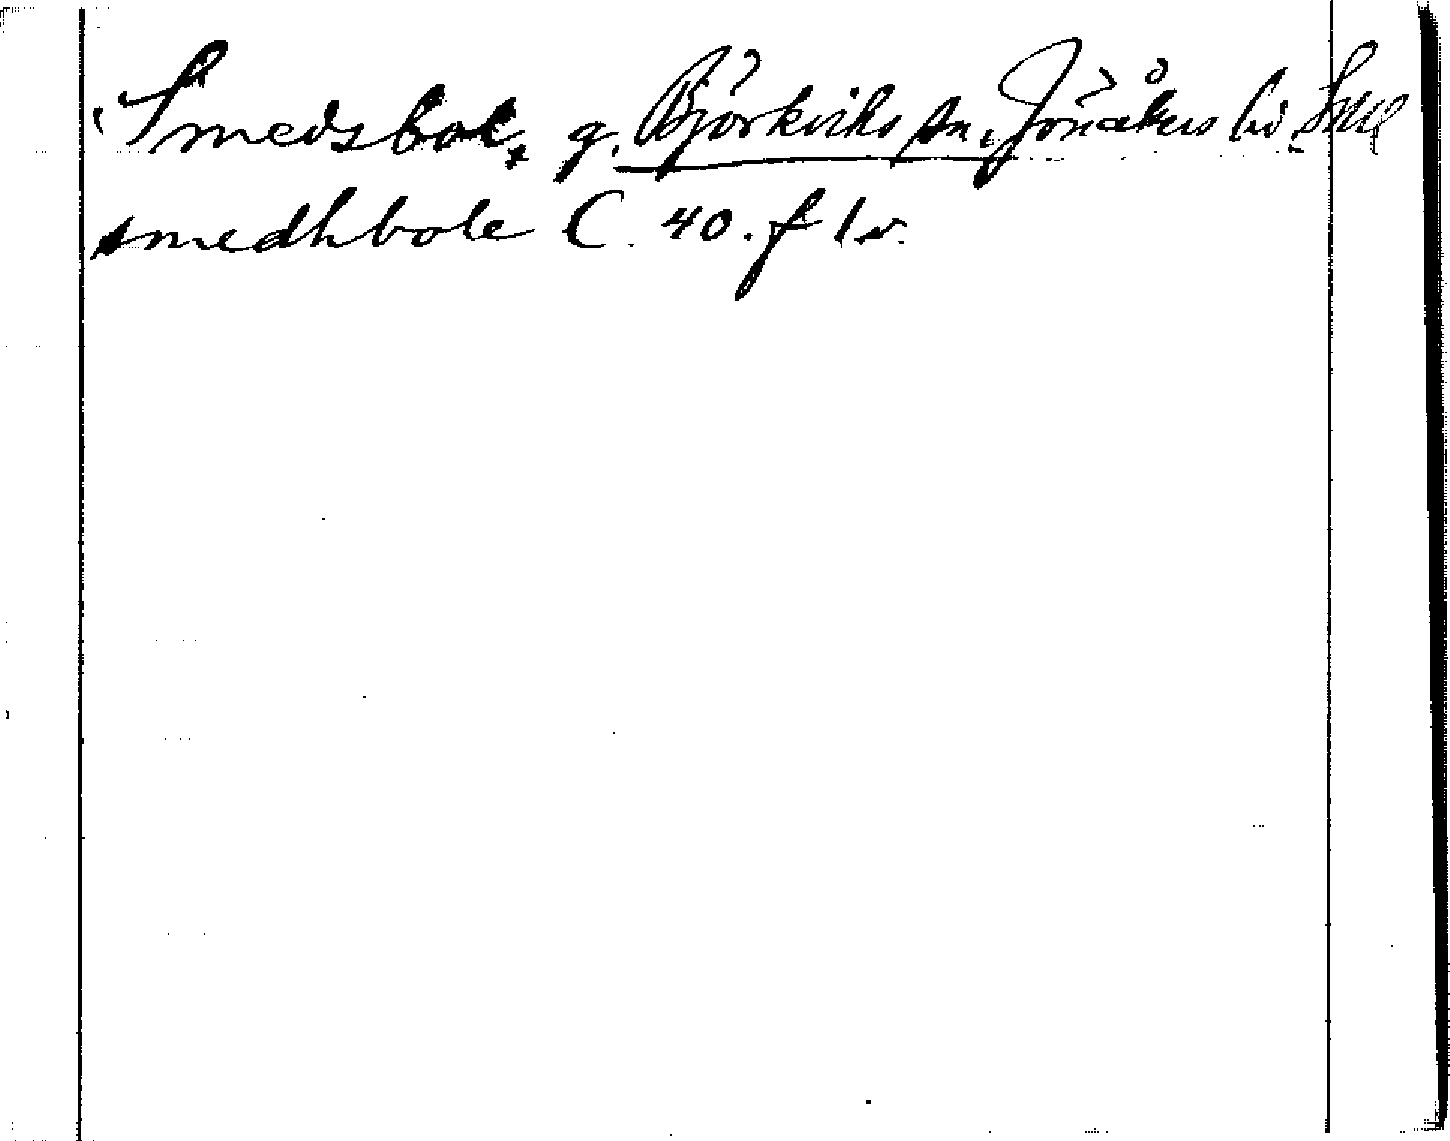 Smedsbol, g. Björkviks sn, Jönåkers hd Sml
smedhbole C. 40. f 1 v.